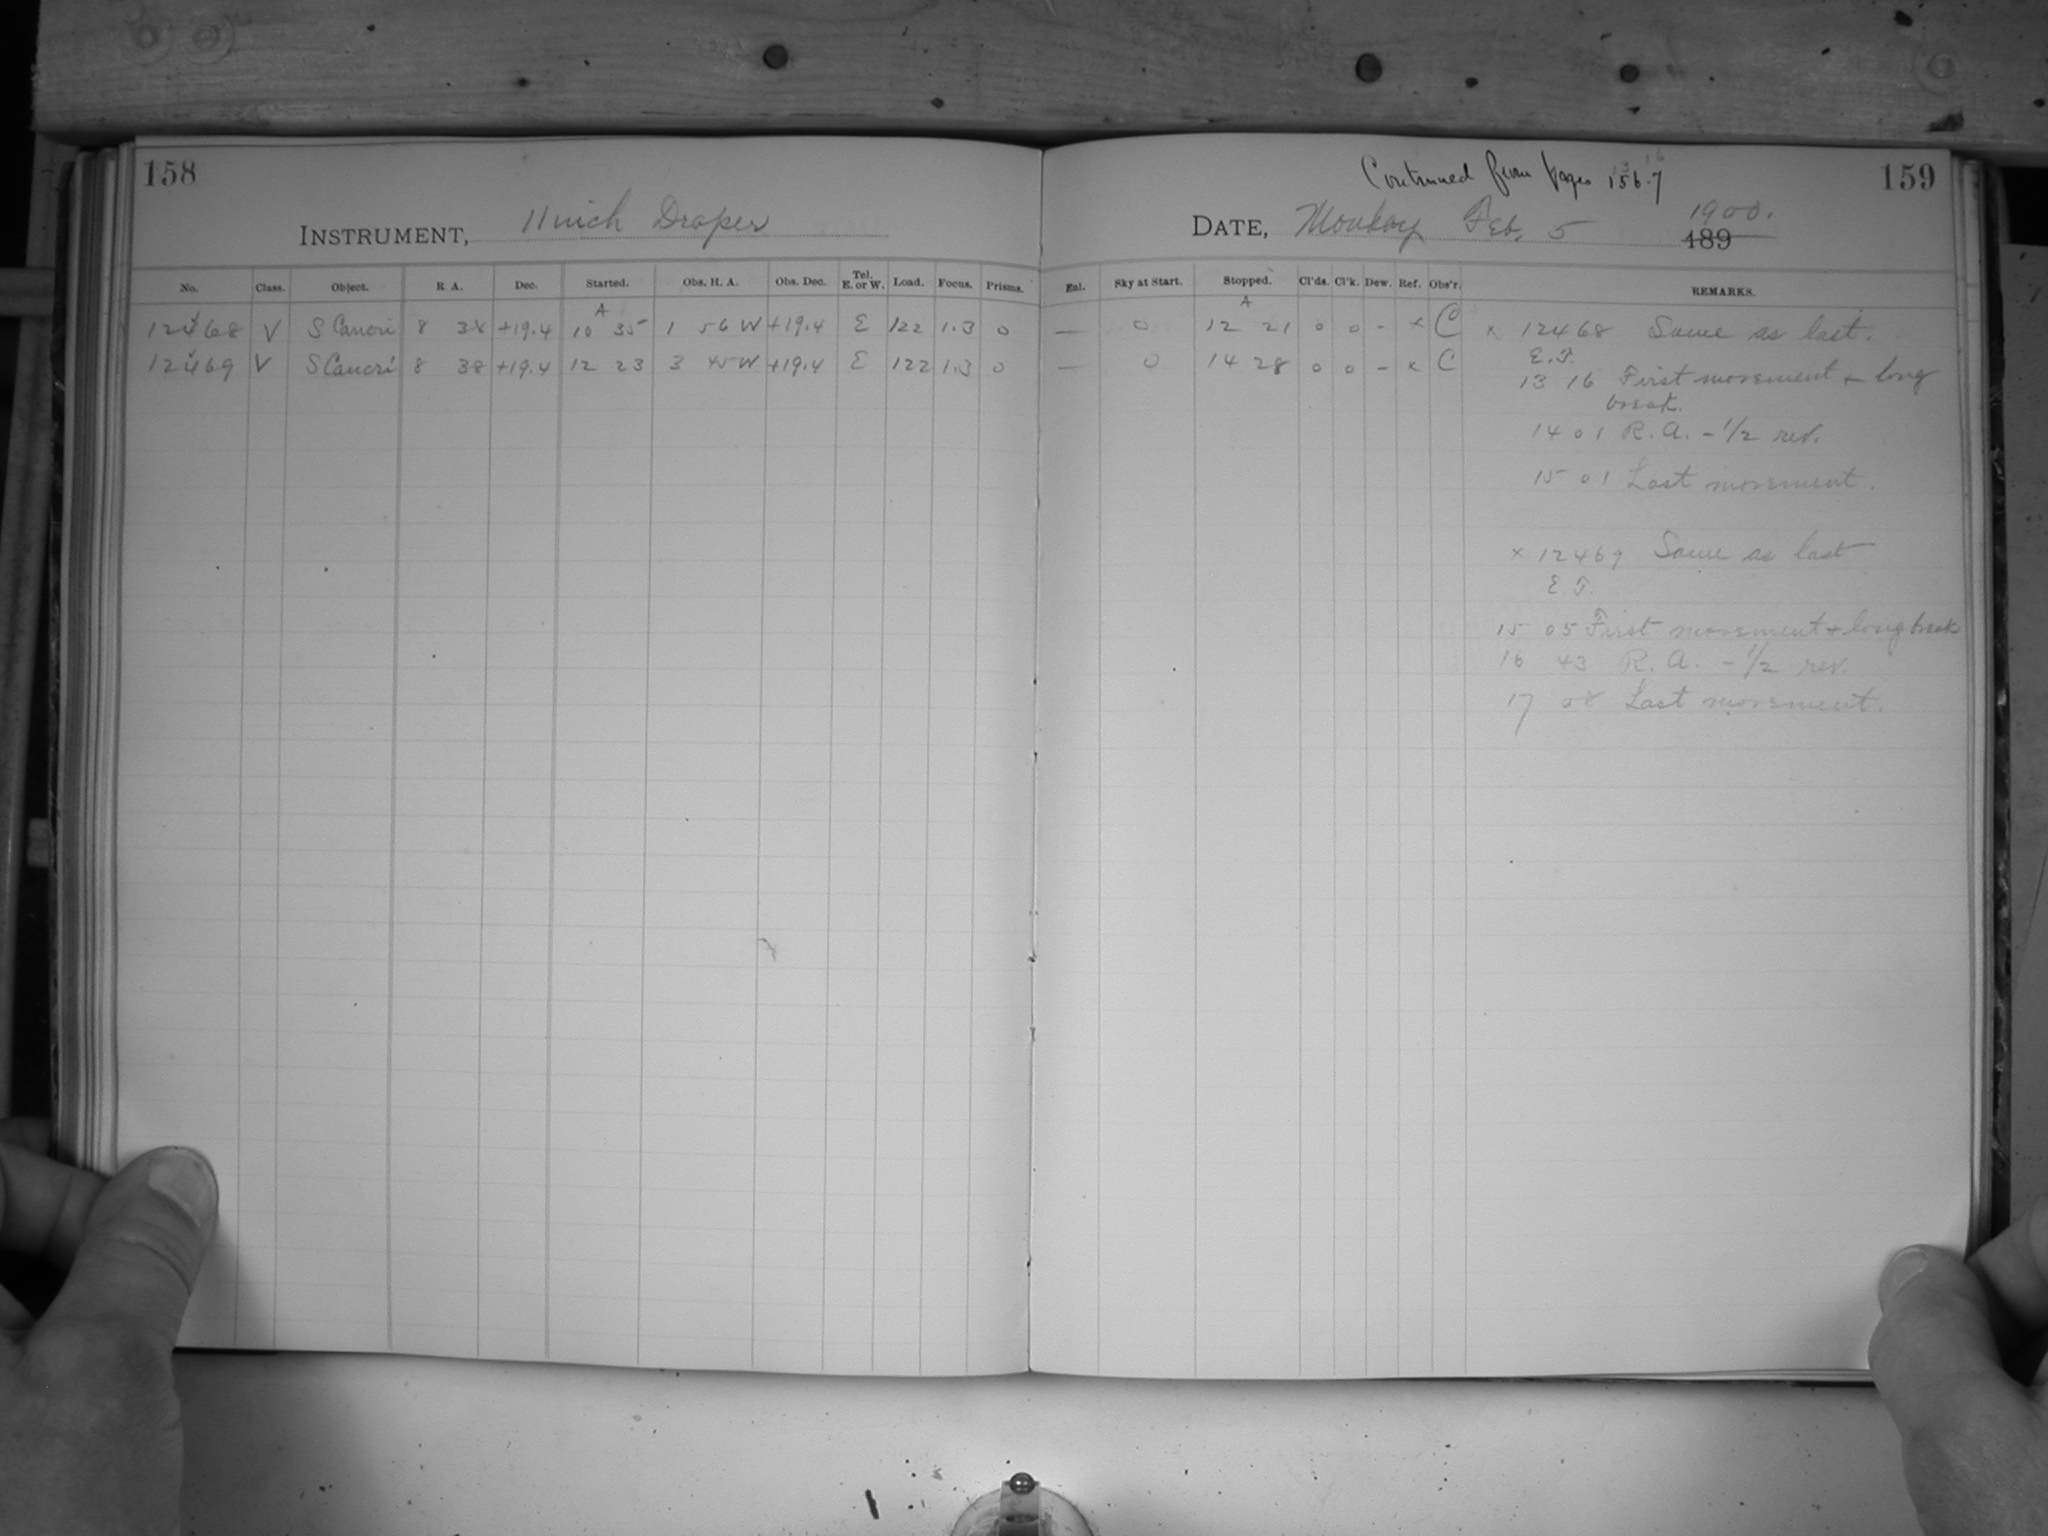 158
INSTRUMENT, 11 inch Draper
No. Class. Object. R. A. Dec. Started. Obs. H. A. Obs. Dec. Tel. E. or W. Load. Focus. Prisms.
A
12468 V S Cancri 8 38 +19.4 10 35 1 56 W +19.4 E 122 1.3 0
12469 V S Cancri 8 38 +19.4 12 23 3 45 W +19.4 E 122 1.3 0
Continued from pages 156-7
159
DATE, Monday Feb. 5 1900.
189
Enl. Sky at Start. Stopped. Cl'ds. Cl'k. Dew. Ref. Obs'r. REMARKS.
A
— 0 12 21 0 0 - x C x 12468 Same as last.
— 0 14 28 0 0 - x C E.T.
13 16 First movement + long
break.
14 01 R.A. - 1/2 rev.
15 01 Last movement.
x 12469 Same as last
E T.
15 05 First movement + long break
16 43 R. A. - 1/2 rev.
17 08 Last movement.